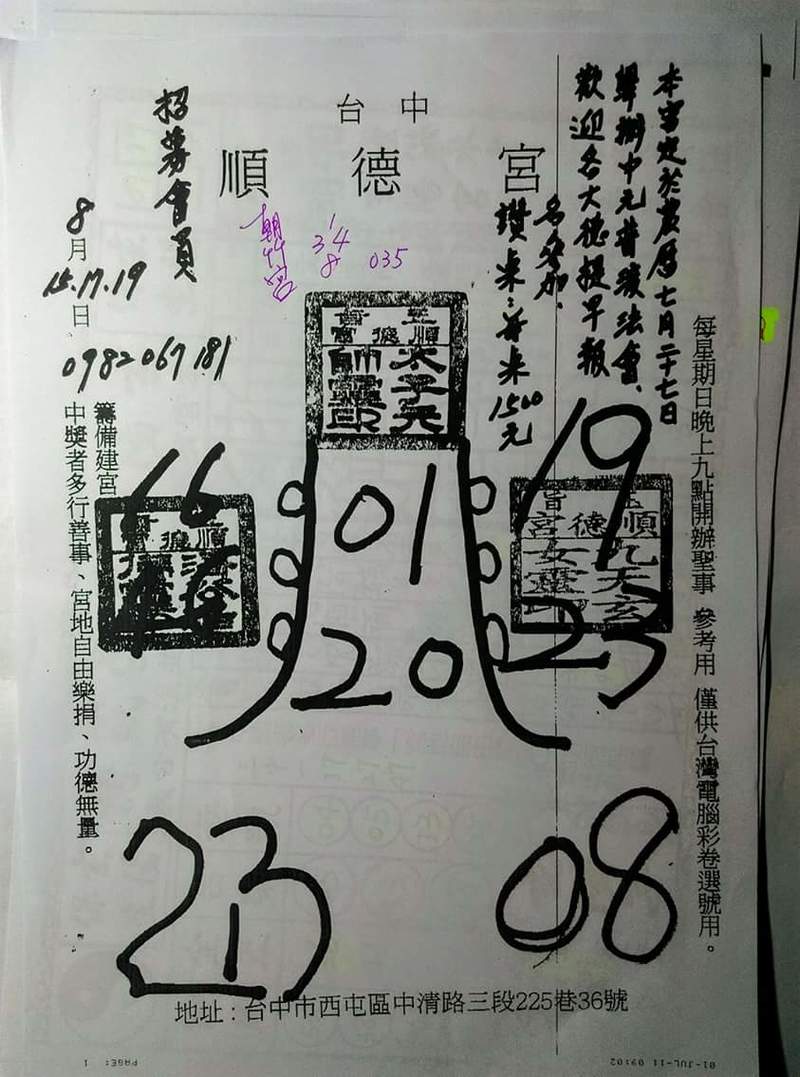 台中
順德宮
本宮定於農曆七月二十七日
舉辦中元普渡法會、
歡迎各大德提早報
名參加、
讚桌：普桌1500元
招募會員
8月
15.17.19
日
0982067181
朝竹宮
1
34
8
035
玉旨
順德宮
太子元
帥靈印
每星期日晚上九點開辦聖事 參考用 僅供台灣電腦彩卷選號用。
籌備建宮
中獎者多行善事、宮地自由樂捐、功德無量。
16
01
19
玉旨
順德宮
九天玄
女靈印
順德宮
20
23
213
08
地址：台中市西屯區中清路三段225巷36號
PAGE: 1
01-JUL-11 09:02